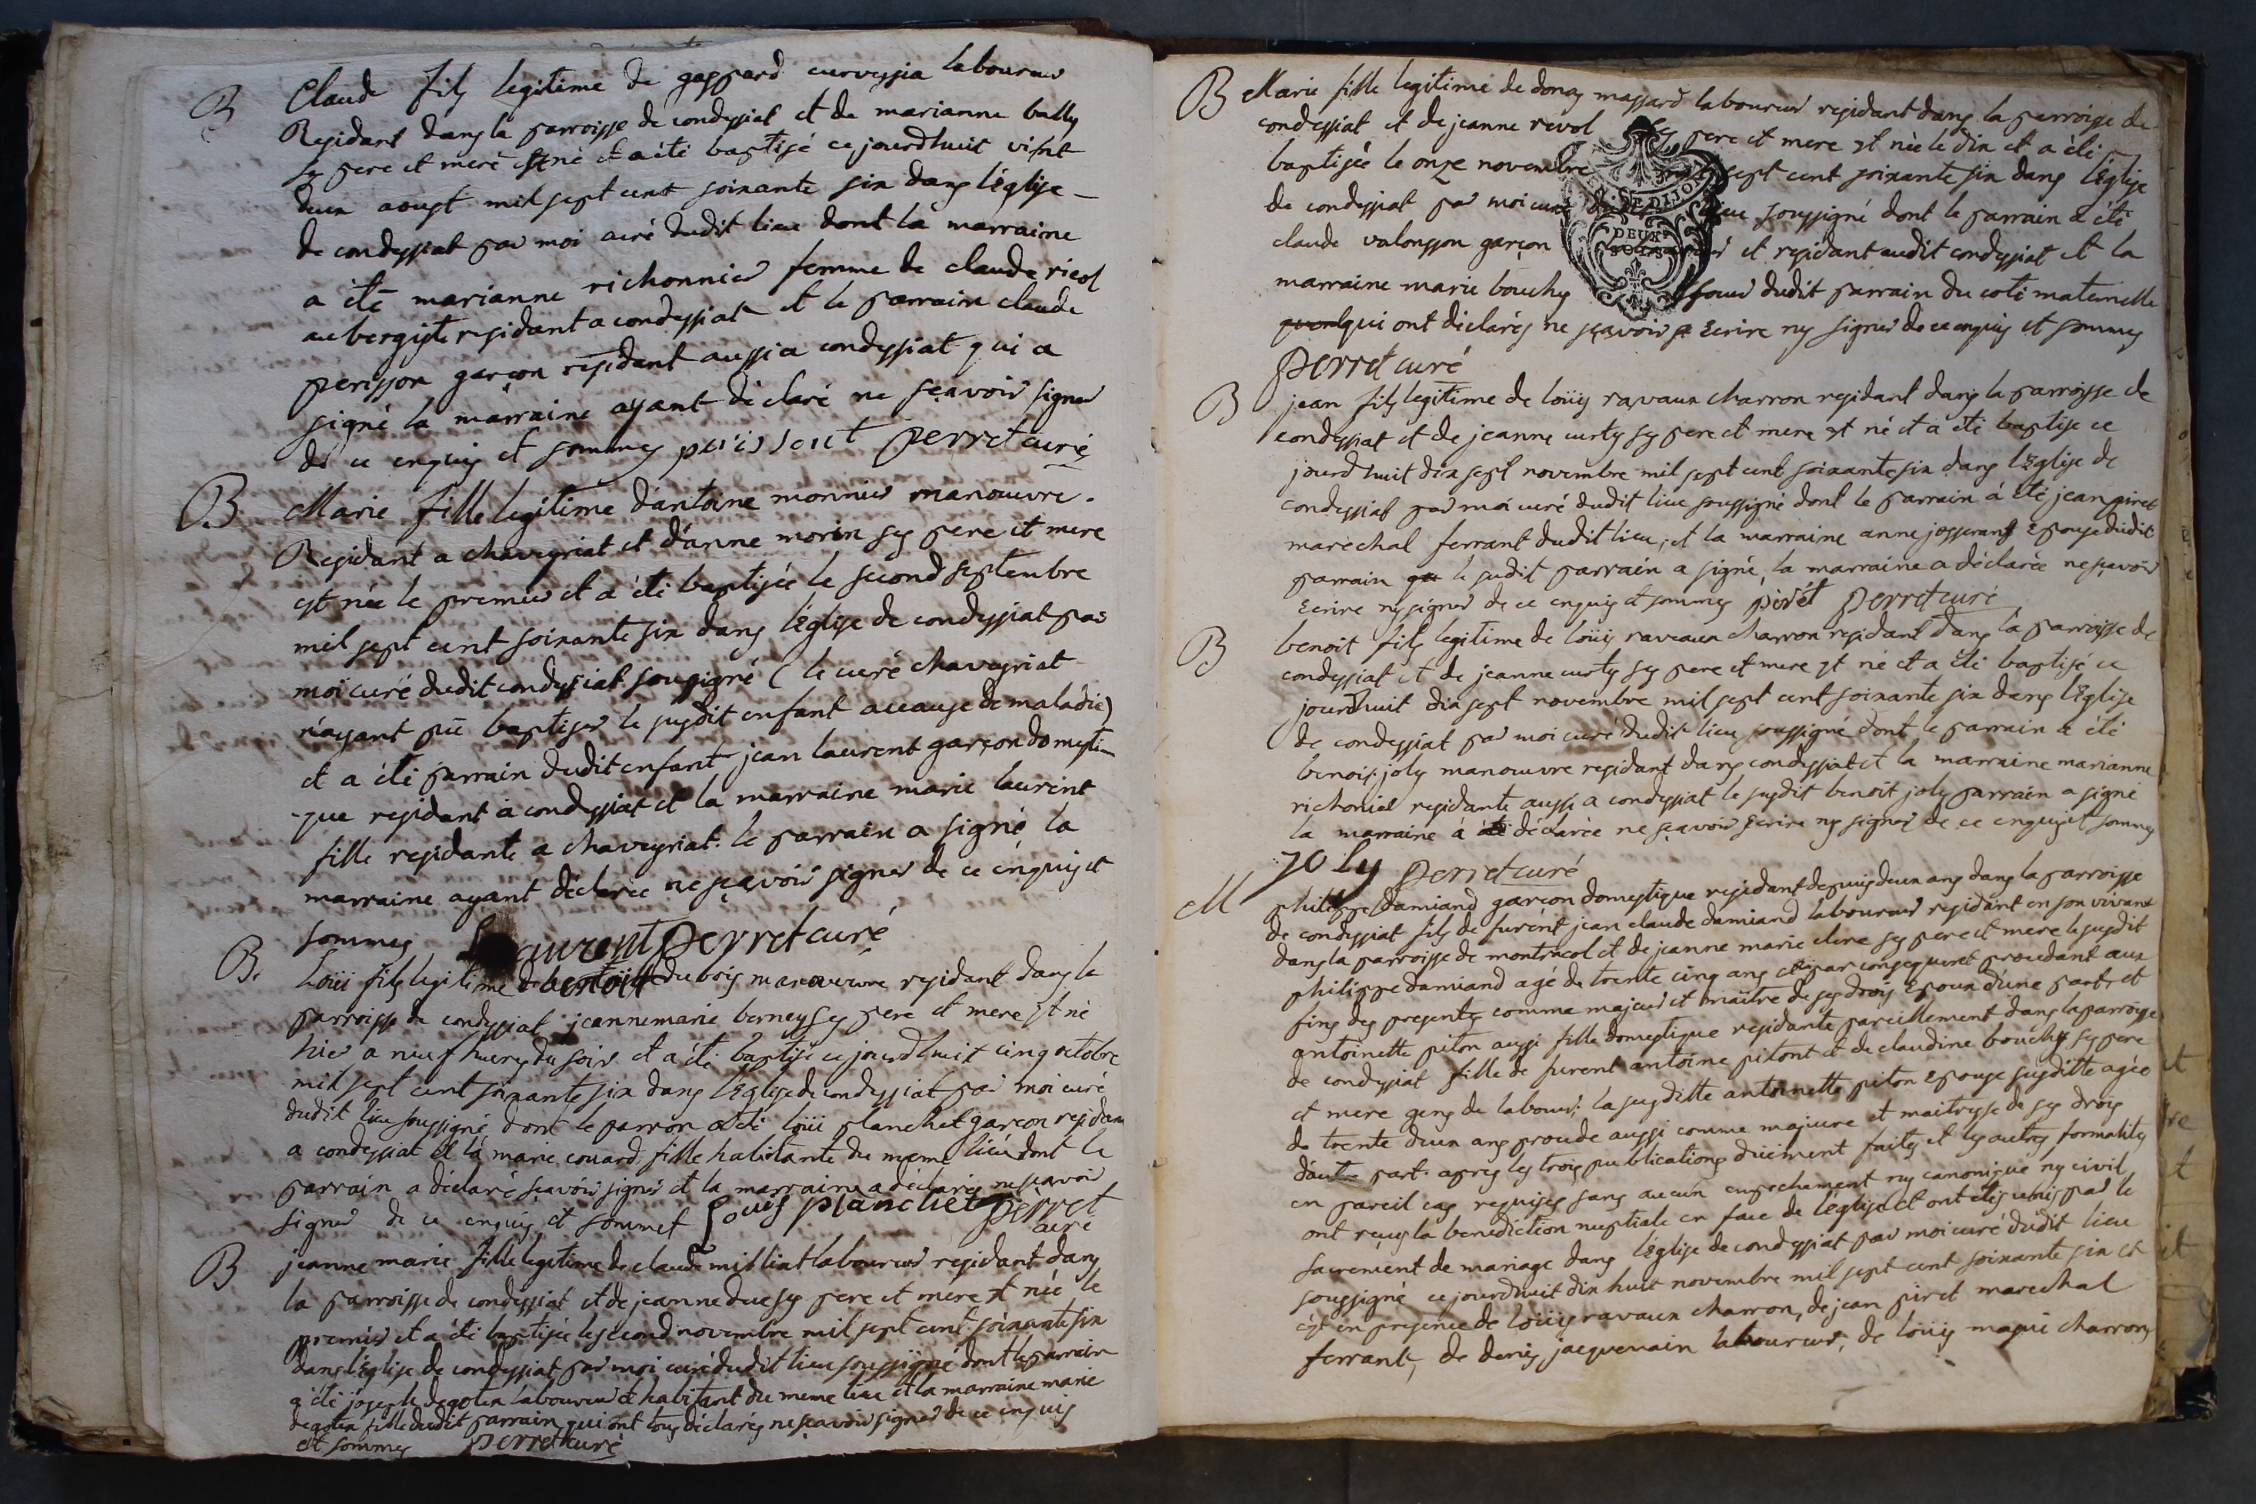 B Claude fils legitime de gaspard curveysia laboureur
Residant dans la parroisse de condeyssiat et de marianne bally
ses pere et mere est né et a été baptisé ce jourdhuit vint
deux aoust mil sept cent soixante six dans l'église
de condeyssiat par moi curé dudit lieu dont la marraine
a été marianne richonnier femme de claude ricol
aubergiste residant a condeyssiat et le parrain claude
perisson garçon residant aussi a condeyssiat qui a
signé la marraine ayant déclaré ne sçavoir signer
de ce enquis et sommes perissont perret curé
B Marie fille legitime d'antoine monnier manoeuvre
Residant a chaveyriat et d'anne morin ses pere et mere
est née le premier et a été baptisée le second septembre
mil sept cent soixante six dans l'église de condeyssiat par
moi curé dudit condeyssiat sousigné (le curé chaveyriat
n'ayant pû baptiser le susdit enfant acause de maladie)
et a été parrain dudit enfant jean laurent garçon domesti-
-que residant a condeyssiat et la marraine marie laurent
fille residante a chaveyriat. le parrain a signé la
marraine ayant déclarée ne sçavoir signer de ce enquis et
sommes Laurent perret curé
B. Loüi fils legitime de benoit dubois manoeuvre residant dans la
parroisse de condeyssiat jeanne marie berney ses pere et mere est né
hier a neuf heures du soir et a été baptisé ce jourdhuit cinq octobre
mil sept cent soixante six dans l'Eglise de condeyssiat par moi curé
dudit lieu soussigné dont le parron a été loüi planchet garçon residant
a condeyssiat et la marie couard fille habitante du meme lieu dont le
parrain a déclaré sçavoir signer et la marraine a déclarés ne sçavoir
signer de ce enquis et sommet Louis planchet perret
curé
B jeanne marie fille legitime de claude milliat laboureur residant dans
la parroisse de condeyssiat et de jeanne duc ses pere et mere est née le
premier et a été baptisée le second novembre mil sept cent soixante six
dans l'Eglise de condeyssiat par moi curé dudit lieu soussigné dont le parrain
a été joseph degoten laboureur et habitant du meme lieu et la marraine marie
degoten fille dudit parrain qui ont tous déclarés ne sçavoir signer de ce enquis
et sommes perret curé
B Marie fille legitime de donas massard laboureur residant dans la parroisse de
condeyssiat et de jeanne revol ses pere et mere est née le dix et a été
baptisée le onze novembre mil sept cent soixante six dans l'Eglise
de condeyssiat par moi curé dudit lieu soussigné dont le parrain a été
claude valonsson garçon et residant audit condeyssiat et la
marraine marie bouchy soeur dudit parrain du coté maternelle
qui ont déclarés ne sçavoir Ecrire ny signer de ce enquis et sommes
perret curé
GEN. DE DIJON
DEUX
SOLS
B jean fils legitime de loüis ravaux charron residant dans la parroisse de
condeyssiat et de jeanne curty ses pere et mere est né et a été baptisé ce
jourdhuit dix sept novembre mil sept cent soixante six dans l'Eglise de
condeyssiat par moi curé dudit lieu soussigné dont le parrain à été jean piret
marechal ferrant dudit lieu, et la marraine anne josserans Epouse dudit
parrain le susdit parrain a signé, la marraine a déclarée ne sçavoir
Ecrire ny signer de ce enquis et sommes pirét perret curé
B benoit fils legitime de loüis raveaux charron residant dans la parroisse de
condeyssiat et de jeanne curty ses pere et mere est né et a été baptisé ce
jourdhuit dix sept novembre mil sept cent soixante six dans l'Eglise
de condeyssiat par moi curé dudit lieu soussigné dont le parrain a été
benois joly manoeuvre residant dans condeyssiat et la marraine marianne
richonier residante aussi a condeyssiat le susdit benoit joly parrain a signé
la marraine à déclarée ne sçavoir Ecrire ny signer de ce enquis et sommes
joly perret curé
M philippe damiand garçon domestique residant depuis deux ans dans la parroisse
de condeyssiat fils de furent jean claude damiand laboureur residant en son vivant
dans la parroisse de montracol et de jeanne marie clere ses pere et mere le susdit
philippe damiand agé de trente cinq ans et par consequent procedant aux
fins des presentes comme majeur et maitre de ses drois Epoux d'une part, et
antoinette piton aussi fille domestique residante pareillement dans la parroisse
de condeyssiat fille de furent antoine pitont et de claudine bouchy ses pere
et mere gens de labour; la susditte antoinette piton Epouse susditte agée
de trente deux ans procede aussi comme majeure et maitresse de ses drois
d'autre part. apres les trois publications düement faites et les autres formalités
en pareil cas requises sans aucun enpechement ny canonique ny civil
ont reçus la benediction nuptiale en face de l'église et ont étés unis par le
sacrement de mariage dans l'église de condeyssiat par moi curé dudit lieu
soussigné ce jourdhuit dix huit novembre mil sept cent soixante six et
c'est en presence de loüis ravaux charron, de jean piret marechal
ferrant, de denis jacquemain laboureur, de loüis maqui charron,